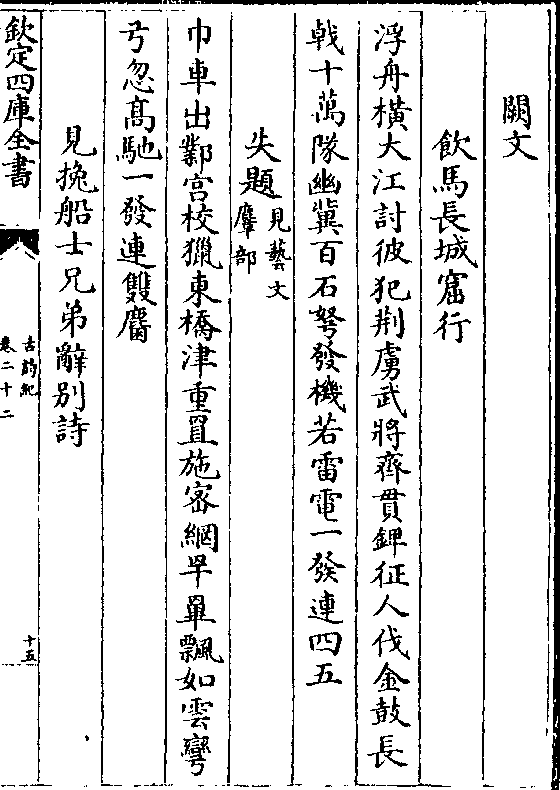 闕文
飲馬長城窟行
浮舟横大江討彼犯荆虜武將齊貫錍征人伐金鼓長
戟十萬隊幽冀百石弩發機若雷電一發連四五
失題見藝文麞部
巾車出鄴宫校獵東橋津重罝施密網罕畢飄如雲彎
弓忽髙馳一發連雙麕
見挽船士兄弟辭别詩
欽定四庫全書
古詩紀
卷二十二
十五